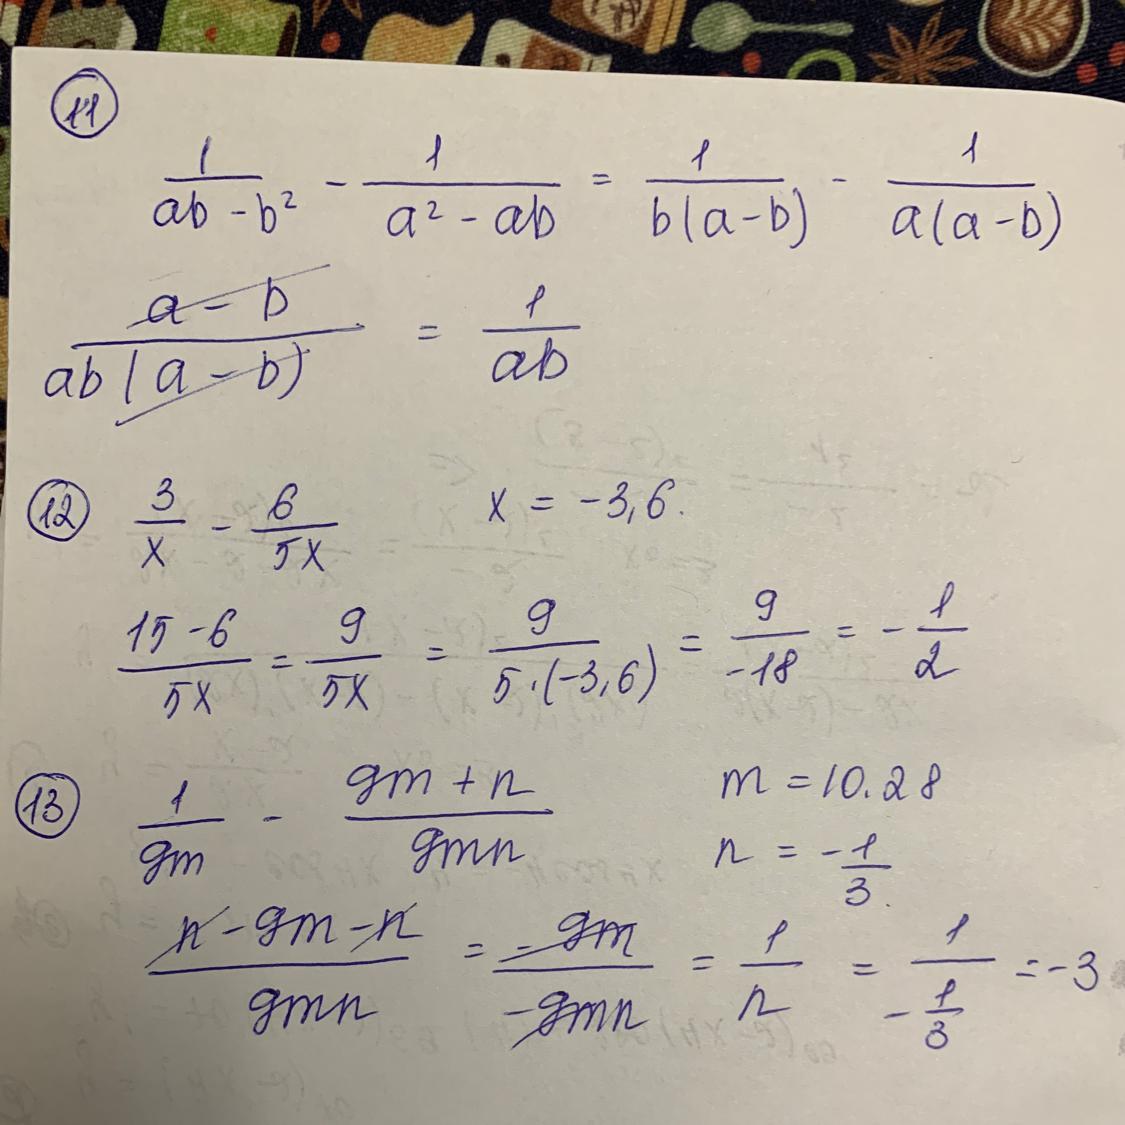 11
1/(ab - b²) - 1/(a² - ab) = 1/(b(a-b)) - 1/(a(a-b))
(a - b)/(ab(a - b)) = 1/(ab)
12 3/x - 6/(5x) x = -3,6.
(15 - 6)/(5x) = 9/(5x) = 9/(5·(-3,6)) = 9/(-18) = -1/2
13 1/(9m) - (9m + n)/(9mn) m = 10.28
n = -1/3.
(n - 9m - n)/(9mn) = (-9m)/(-9mn) = 1/n = 1/(-1/3) = -3